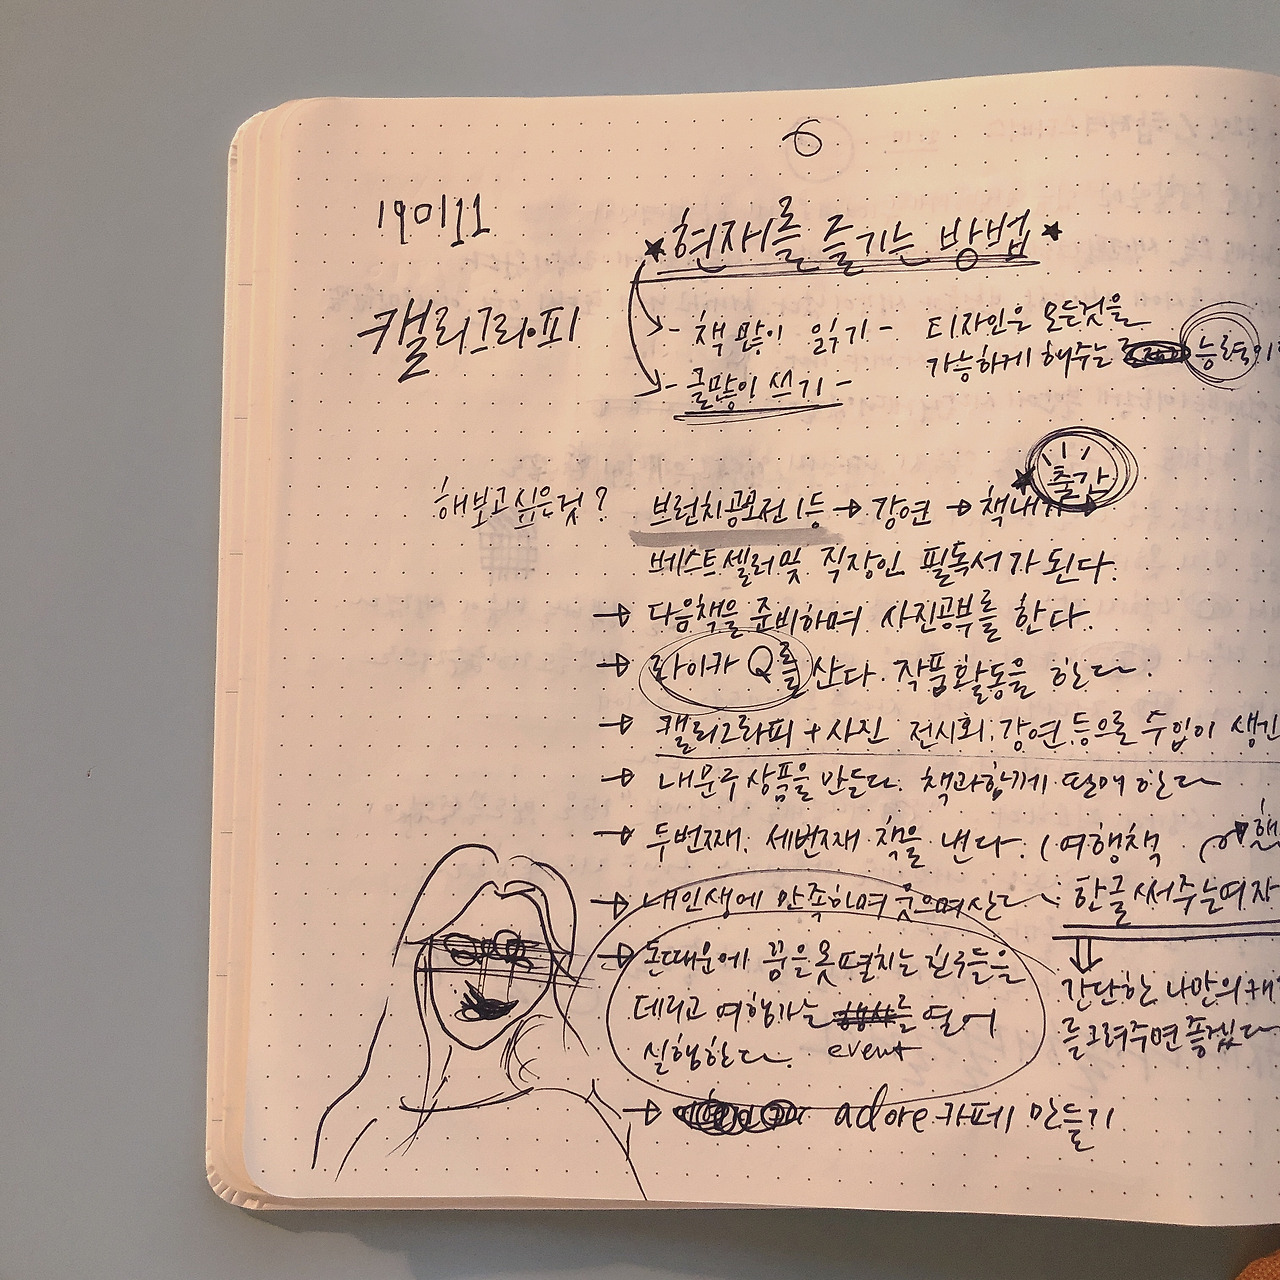 6
190111
★현재를 즐기는 방법★
캘리그라피
- 책 많이 읽기 -
디자인은 모든것을
가능하게 해주는
- 글많이 쓰기 -
출간
해보고싶은것?
브런치공모전 1등 → 강연 → 책내기
베스트셀러 및 직장인 필독서가 된다.
→ 다음책을 준비하며 사진공부를 한다.
→ 라이카 Q를 산다. 작품활동을 한다.
→ 캘리그라피 + 사진 전시회, 강연 등으로 수입이
→ 내문구 상품을 만든다. 책과함께 판매 한다
→ 두번째, 세번째 책을 낸다. (여행책
→ 내인생에 만족하며 웃으며산다
한글써주는여자
→ 돈때문에 꿈을못펼치는 친구들을
데리고 여행가는 를 열어
event
실행한다.
간단한 나만의
를그려주면좋겠다
→ adore 카페 만들기